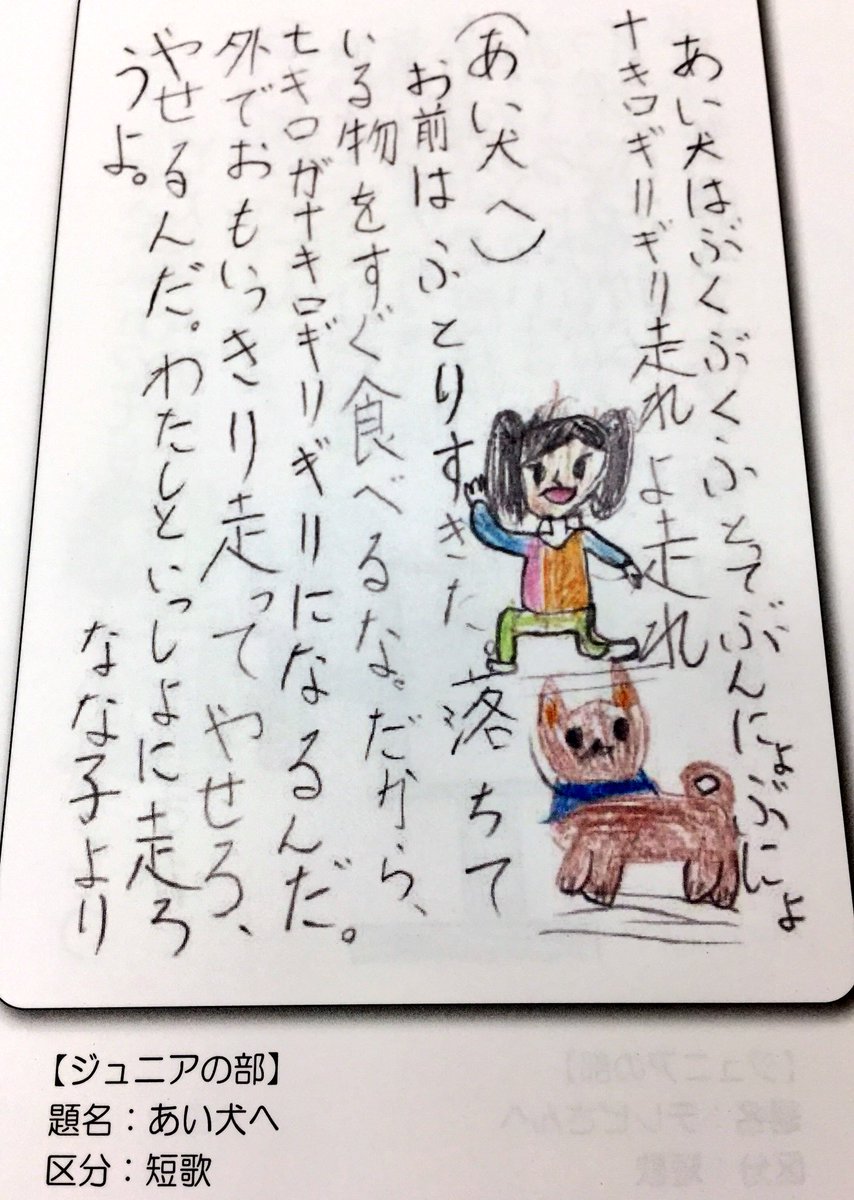 あい犬はぶくぶくふとってぶんにょぶにょ
十キロギリギリ走れよ走れ
（あい犬へ）
お前はふとりすぎた。落ちて
いる物をすぐ食べるな。だから、
七キロが十キロギリギリになるんだ。
外でおもいっきり走ってやせろ、
やせるんだ。わたしといっしょに走ろ
うよ。
なな子より
【ジュニアの部】
題名：あい犬へ
区分：短歌